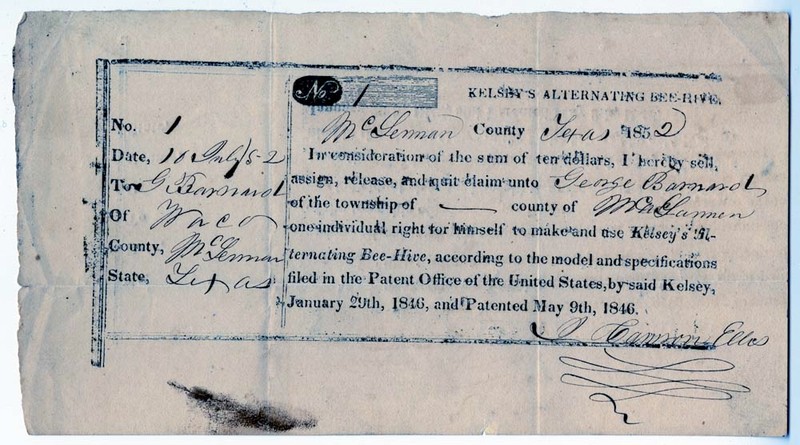 No. 1
Date, 10 July 52
To G Barnard
Of Waco
County, McLennan
State, Texas
No. 1 KELSEY'S ALTERNATING BEE-HIVE.
McLennan County Texas 1852
In consideration of the sum of ten dollars, I hereby sell,
assign, release, and quit claim unto George Barnard
of the township of — county of
one individual right for himself to make and use Kelsey's Al-
ternating Bee-Hive, according to the model and specifications
filed in the Patent Office of the United States, by said Kelsey,
January 29th, 1846, and Patented May 9th, 1846.